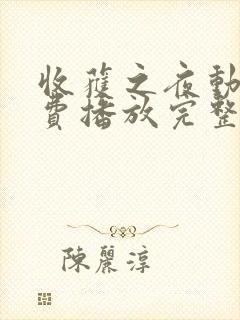 收蓷之夜動
費播放完整
陳麗淳